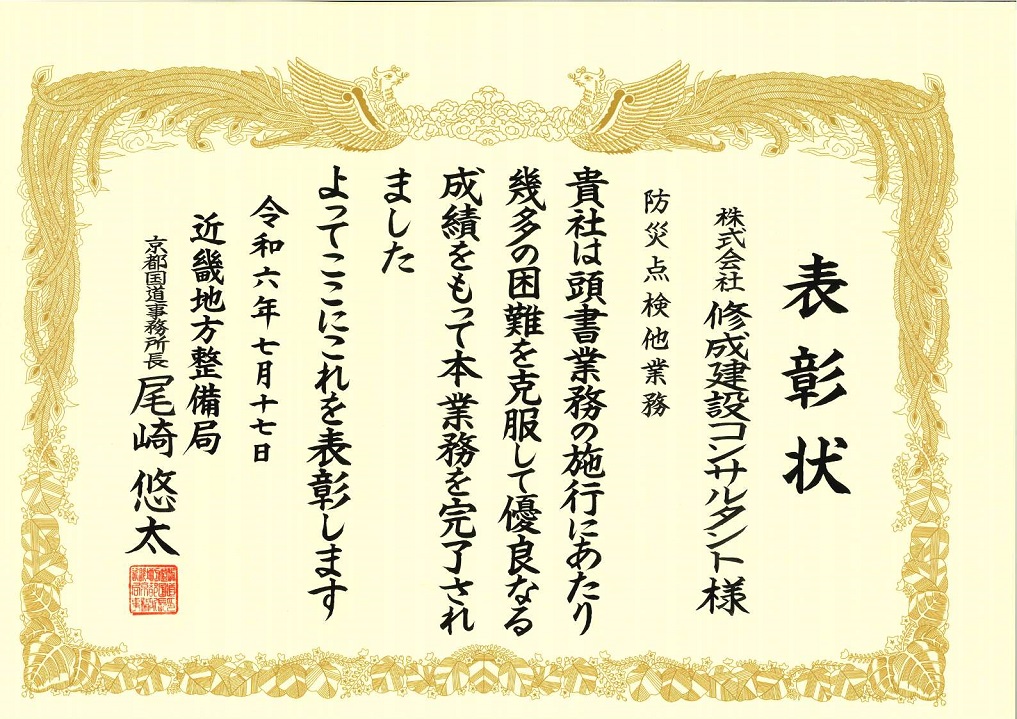 表彰状
株式会社 修成建設コンサルタント 様
防災点検他業務
貴社は頭書業務の施行にあたり
幾多の困難を克服して優良なる
成績をもって本業務を完了され
ました
よってここにこれを表彰します
令和六年七月十七日
近畿地方整備局
京都国道事務所長 尾崎 悠太